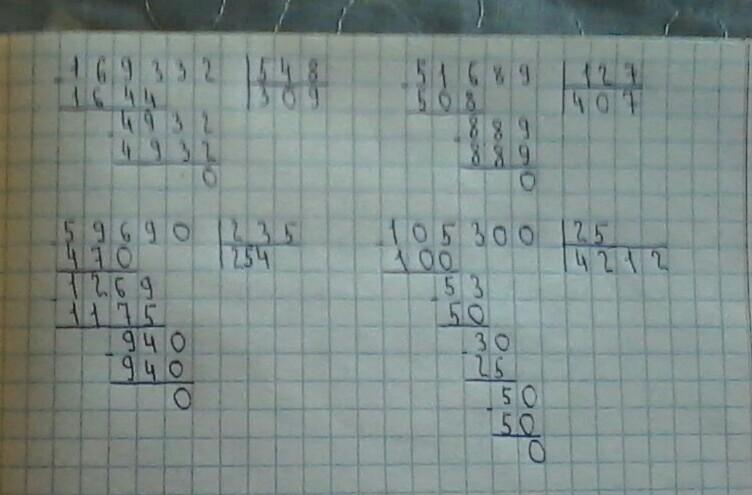 169332 548
1644 309
4932
4932
0
51689 127
508 407
889
889
0
59690 235
470 254
1269
1175
940
940
0
105300 25
100 4212
53
50
30
25
50
50
0